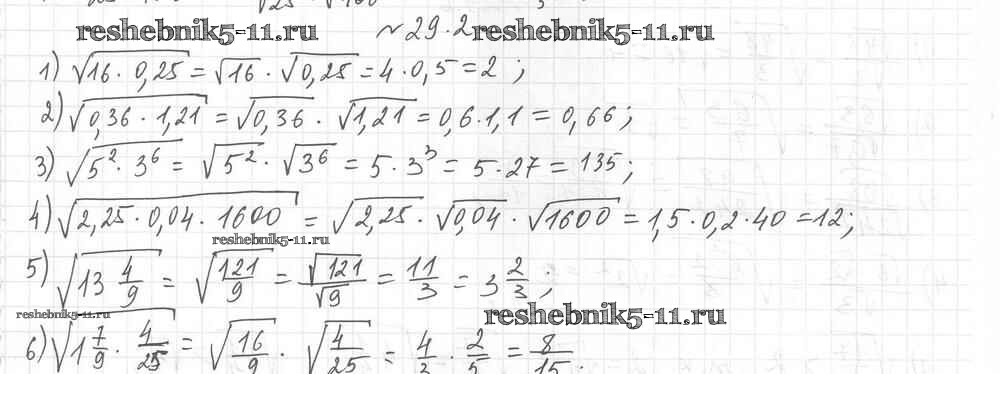 √25 √160
reshebnik5-11.ru №29.2 reshebnik5-11.ru
1) √16·0,25 = √16 · √0,25 = 4·0,5 = 2 ;
2) √0,36 · 1,21 = √0,36 · √1,21 = 0,6·1,1 = 0,66;
3) √5²·3⁶ = √5² · √3⁶ = 5·3³ = 5·27 = 135;
4) √2,25·0,04·1600 = √2,25 · √0,04 · √1600 = 1,5·0,2·40 = 12;
reshebnik5-11.ru
5) √13 4/9 = √121/9 = √121/√9 = 11/3 = 3 2/3;
reshebnik5-11.ru reshebnik5-11.ru
6) √1 7/9 · 4/25 = √16/9 · √4/25 = 4/3 · 2/5 = 8/15.